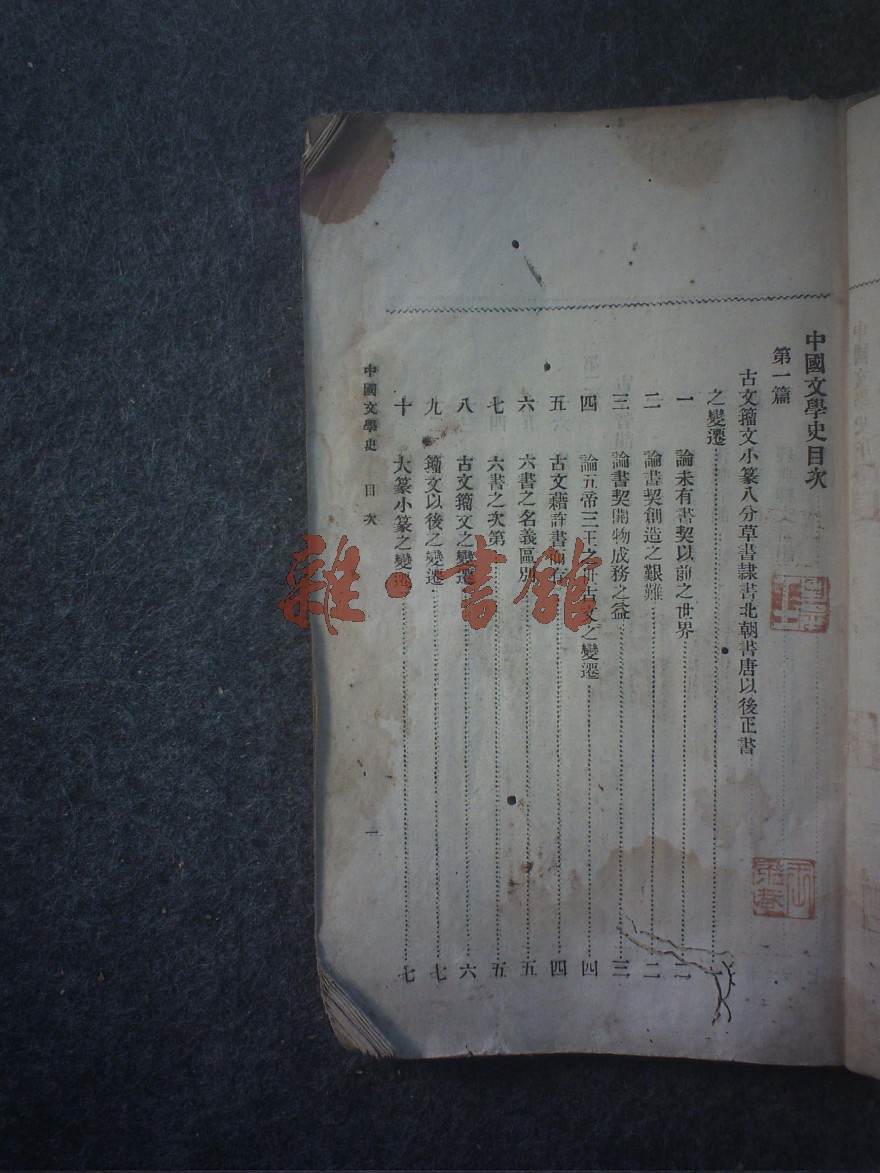 中國文學史目次
第一篇
古文籀文小篆八分草書隸書北朝書唐以後正書
之變遷
一 論未有書契以前之世界 二
二 論書契創造之艱難 二
三 論書契開物成務之益 三
四 論五帝三王之世古文之變遷 四
五 古文藉許書 四
六 六書之名義區別 五
七 六書之次第 五
八 古文籀文之變遷 六
九 籀文以後之變遷 七
十 大篆小篆之變遷 七
中國文學史 目次 一
雜·書館